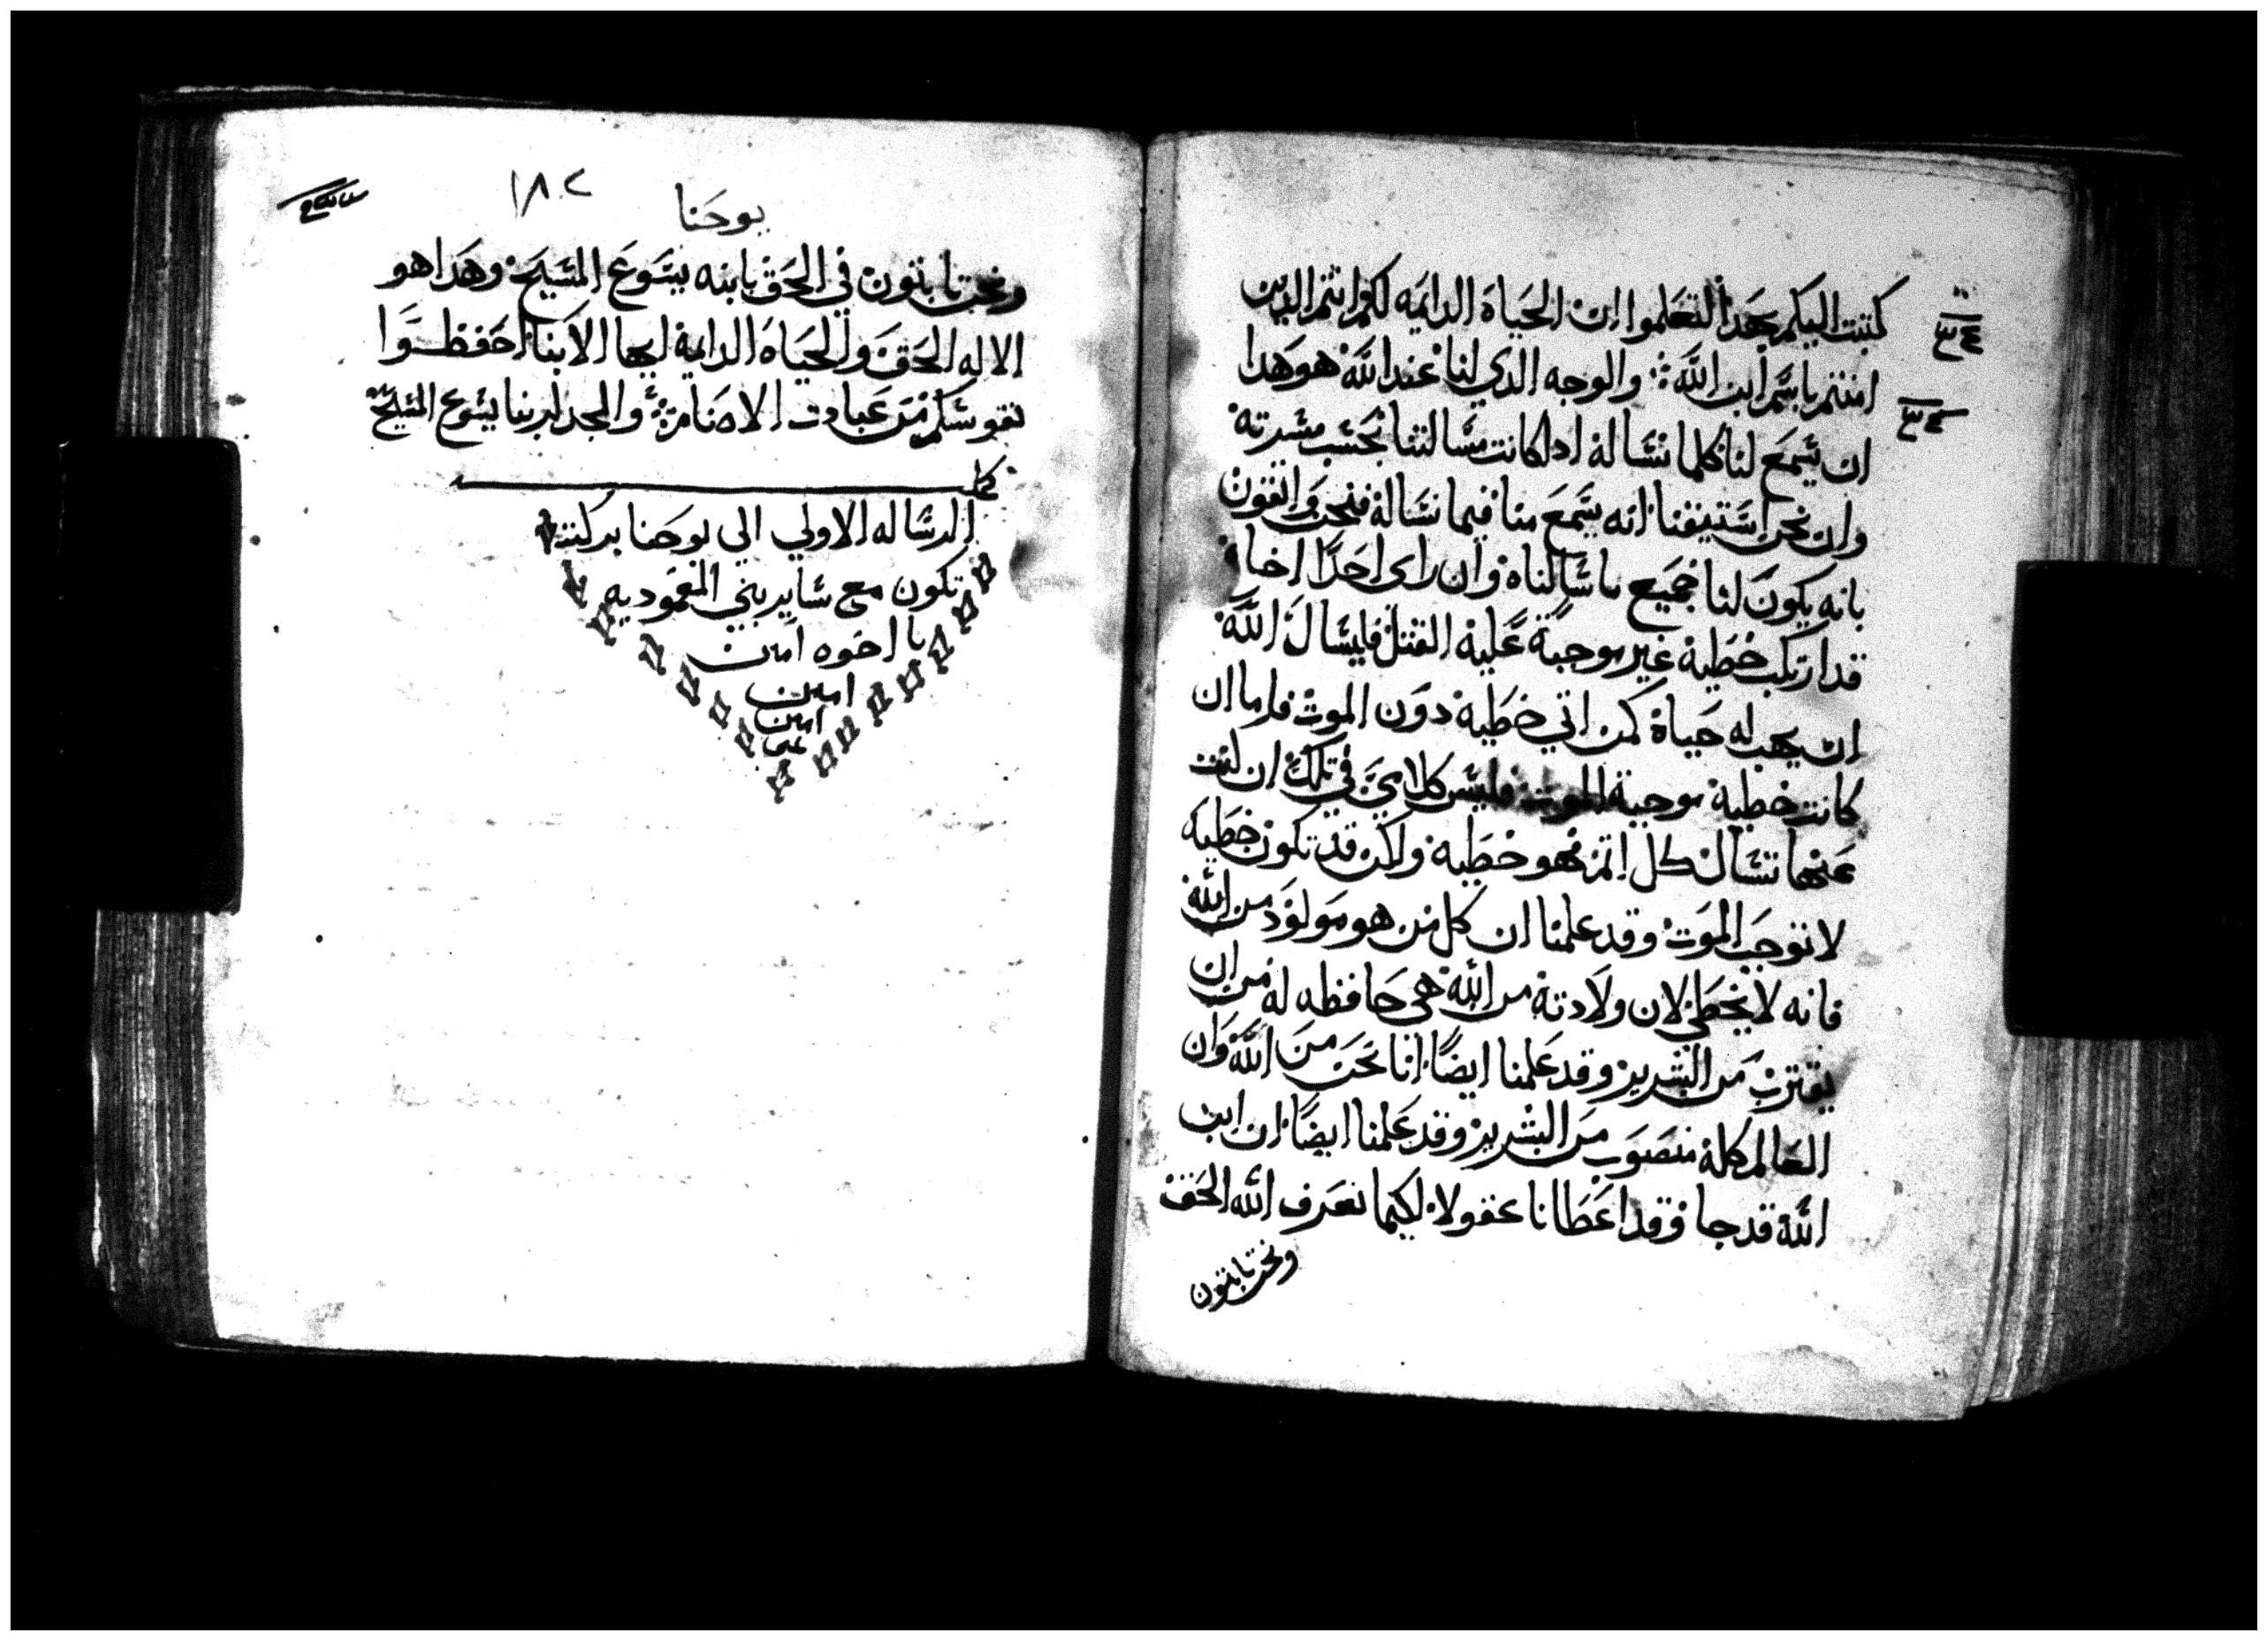 كتبت اليكم بهدا لتعلموا ان الحياة الدايمه لكم انتم الدين
امنتم باسم ابن الله والوجه الدي لنا عند الله هو هدا
ان يسمع لنا كلما نساله ادا كانت مسالتنا بحسب مسرته
وان نحن استيقنا انه يسمع منا فيما نساله فنحن واثقون
بانه يكون لنا جميع ما سالناه وان راى احدًا اخاه
قد ارتكب خطية غير موجبة علية القتل فليسال الله
ان يهب له حياة كمن اتي خطية دون الموت فاما ان
كانت خطية موجبة الموت فليس كلامي في تلك ان لست
عنها تسال كل اتم فهو خطية ولكن قد تكون خطية
لا توجب الموت وقد علمنا ان كل من هو مولود من الله
فانه لا يخطي لان ولادتة من الله هي حافظه له من ان
يقترب من الشرير وقد علمنا ايضًا انا نحن من الله وان
العالم كلة منصوب من الشرير وقد علمنا ايضًا ان ابن
الله قد جا وقد اعطانا عقولا لكيما نعرف الله الحق
ونحن تابتون
١٨٢
يوحنا
ونحن تابتون في الحق بابنه يسوع المسيح وهدا هو
الاله الحق والحياة الدايمة ايها الابنا احفظوا
نفوسكم من عبادت الاصنام والمجد لربنا يسوع المسيح
كملت
الرساله الاولي الي يوحنا بركته
تكون مع ساير بني المعموديه
يا اخوه امين
امين
امين